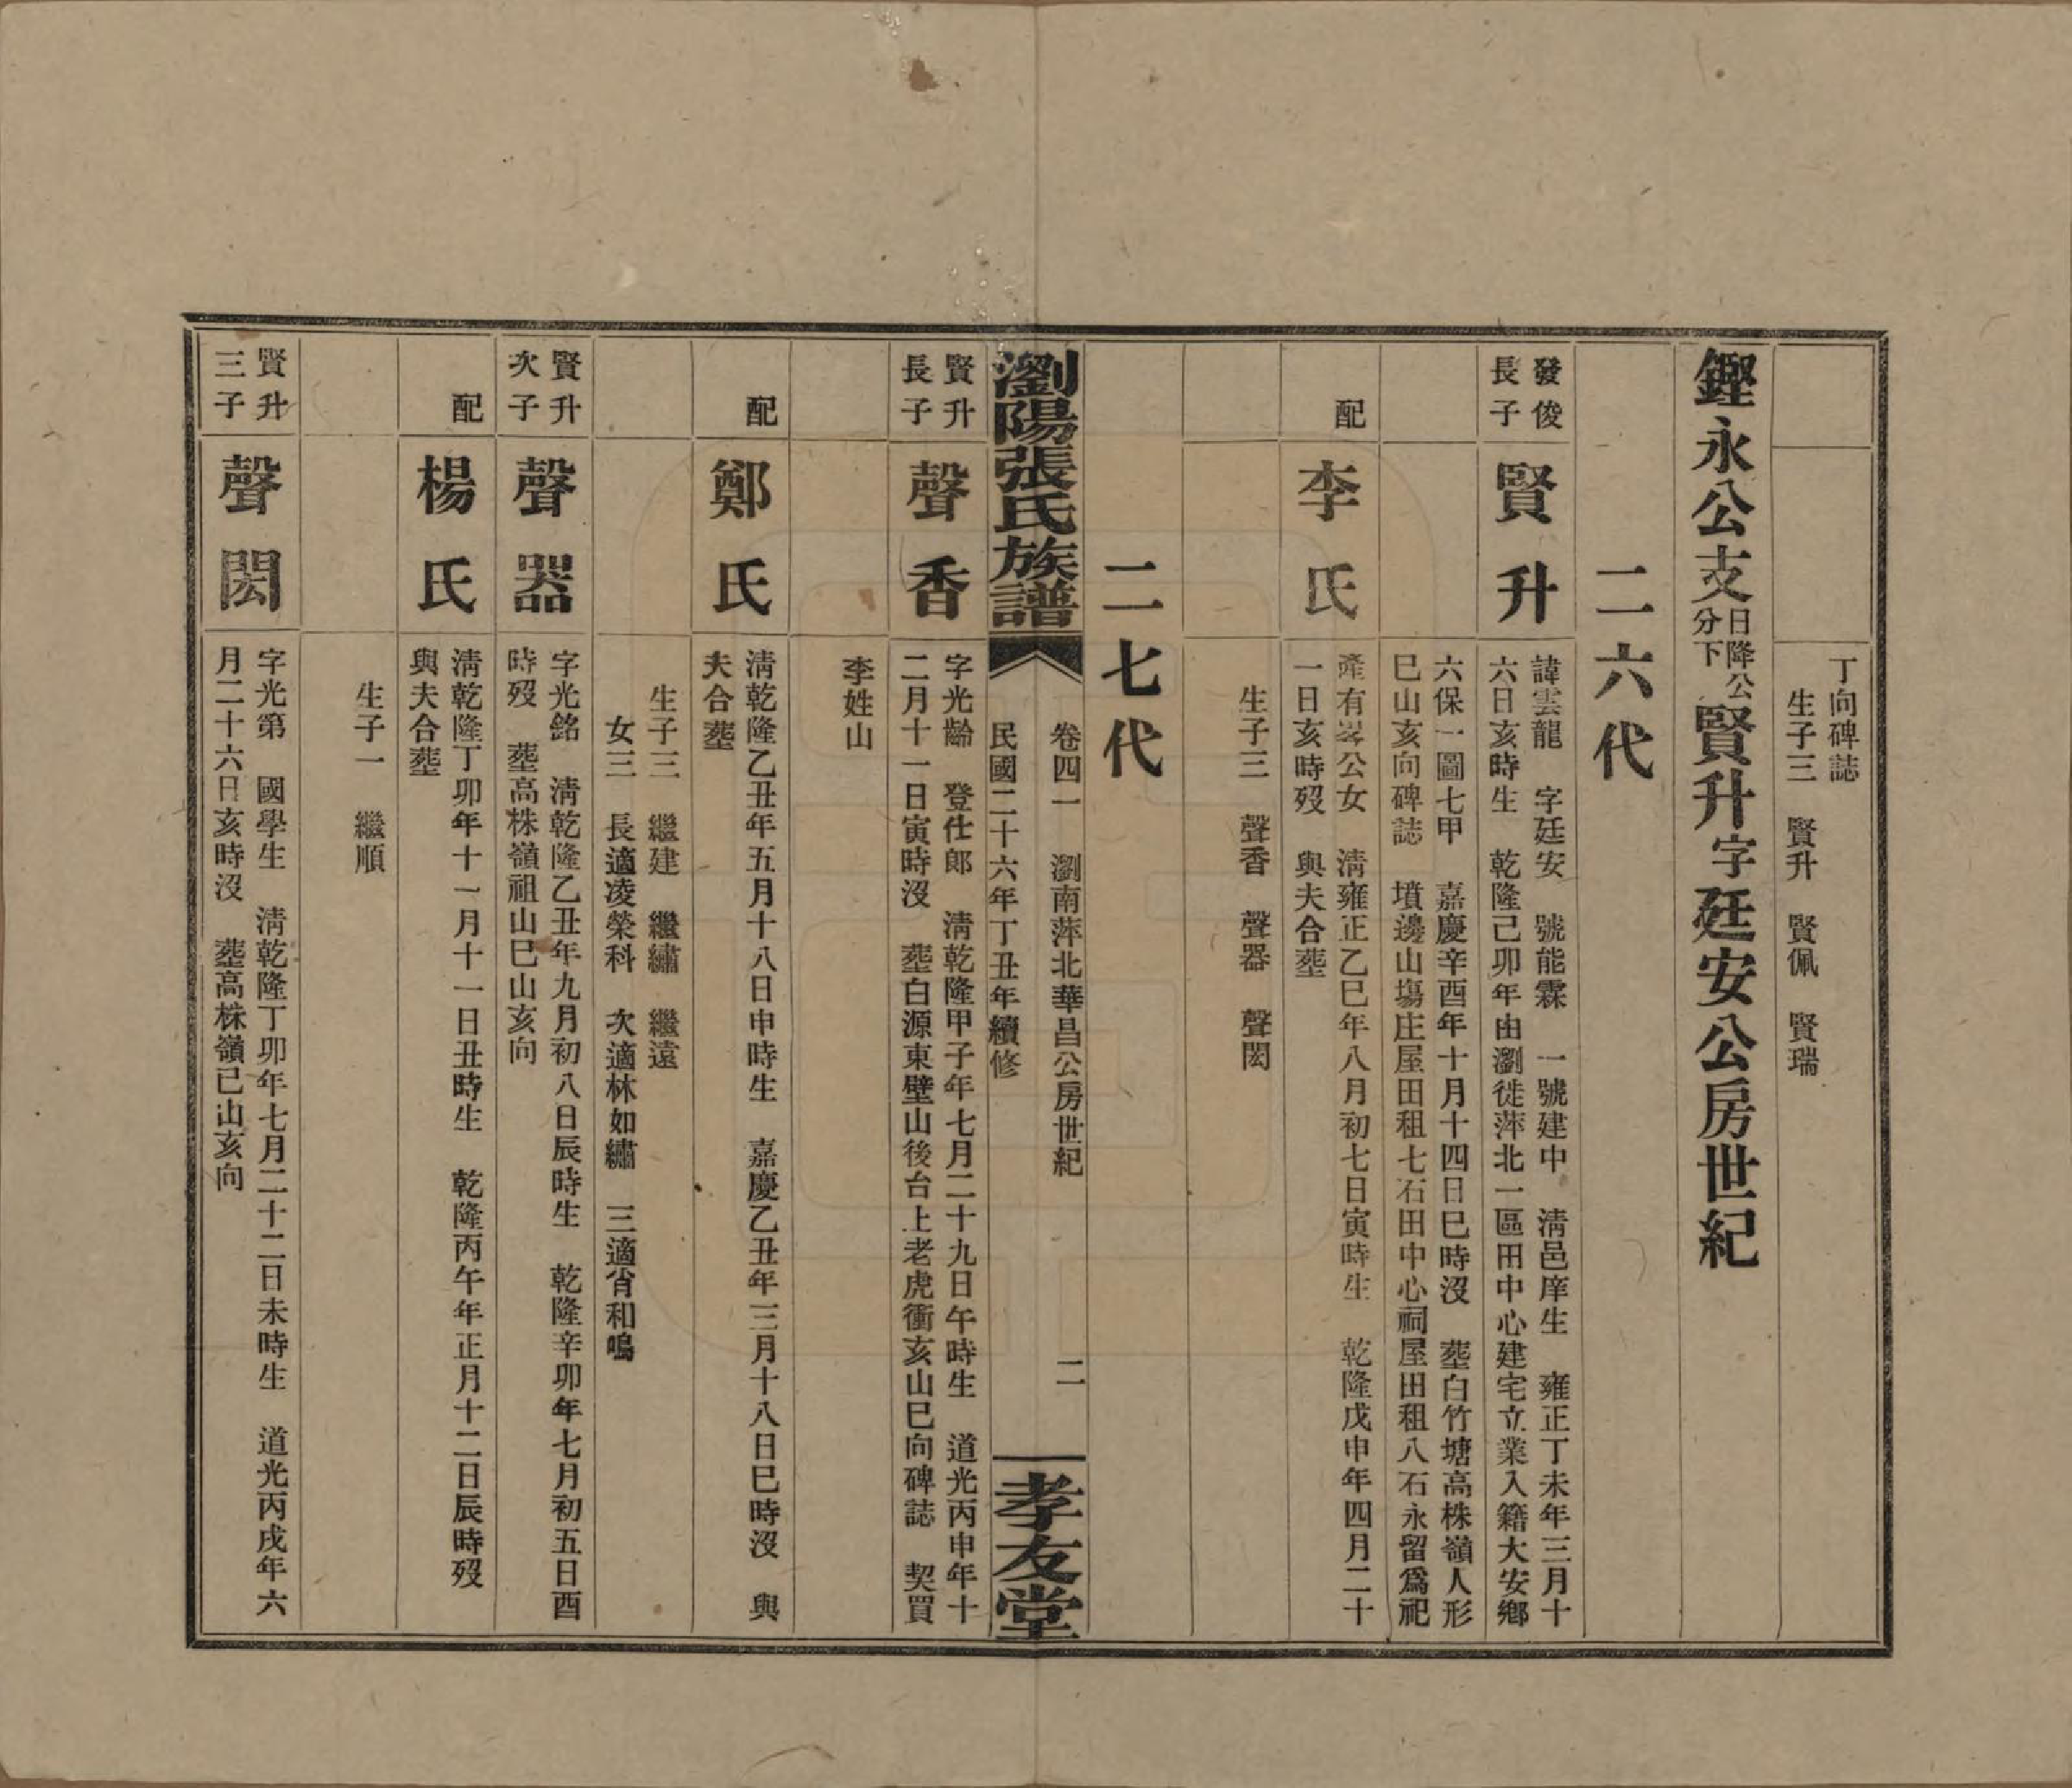 丁向碑誌
生子三　賢升　賢佩　賢瑞
鏗永公支分下日降公賢升字廷安公房世紀
二六代
發俊長子
賢升
諱雲龍　字廷安　號能霖　一號建中　清邑庠生　雍正丁未年三月十
六日亥時生　乾隆己卯年由瀏徙萍北一區田中心建宅立業入籍大安鄉
六保一圖七甲　嘉慶辛酉年十月十四日巳時沒　塟白竹塘高株嶺人形
巳山亥向碑誌　墳邊山塲庄屋田租七石田中心祠屋田租八石永留爲祀
產有
配
李氏
公女　清雍正乙巳年八月初七日寅時生　乾隆戊申年四月二十
一日亥時歿　與夫合塟
生子三　聲香　聲器　聲閎
二七代
瀏陽張氏族譜
卷四一　瀏南萍北華昌公房世紀　二
民國二十六年丁丑年續修
孝友堂
賢升長子
聲香
字光齡　登仕郎　清乾隆甲子年七月二十九日午時生　道光丙申年十
二月十一日寅時沒　塟白源東壁山後台上老虎衝亥山巳向碑誌　契買
李姓山
配
鄭氏
清乾隆乙丑年五月十八日申時生　嘉慶乙丑年三月十八日巳時沒　與
夫合塟
生子三　繼建　繼繡　繼遠
女三　長適凌榮科　次適林如繡　三適肖和鳴
賢升次子
聲器
字光銘　清乾隆乙丑年九月初八日辰時生　乾隆辛卯年七月初五日酉
時歿　塟高株嶺祖山巳山亥向
配
楊氏
清乾隆丁卯年十一月十一日丑時生　乾隆丙午年正月十二日辰時歿
與夫合塟
生子一　繼順
賢升三子
聲閎
字光第　國學生　清乾隆丁卯年七月二十二日未時生　道光丙戌年六
月二十六日亥時沒　塟高株嶺巳山亥向